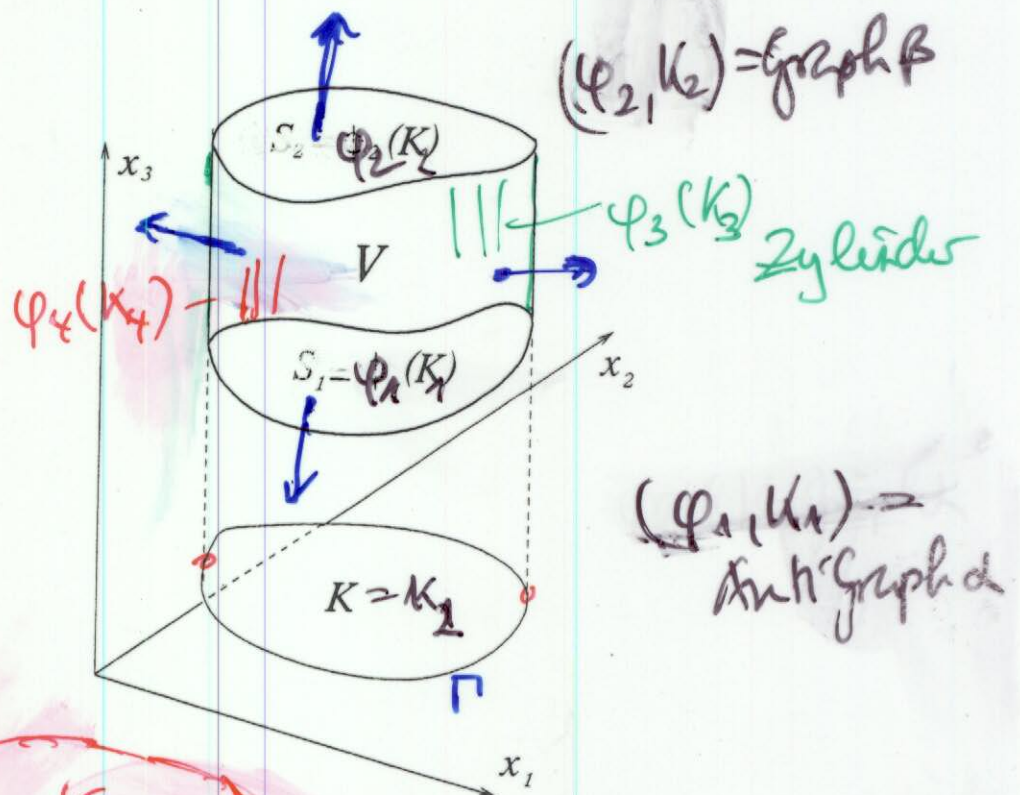 (φ₂, K₂) = Graph β
S₂ = φ₂(K₂)
x₃
φ₃(K₃)
Zylinder
V
φ₄(K₄)
S₁ = φ₁(K₁)
x₂
(φ₁, K₁) =
Anti Graph α
K = K₂
Γ
x₁